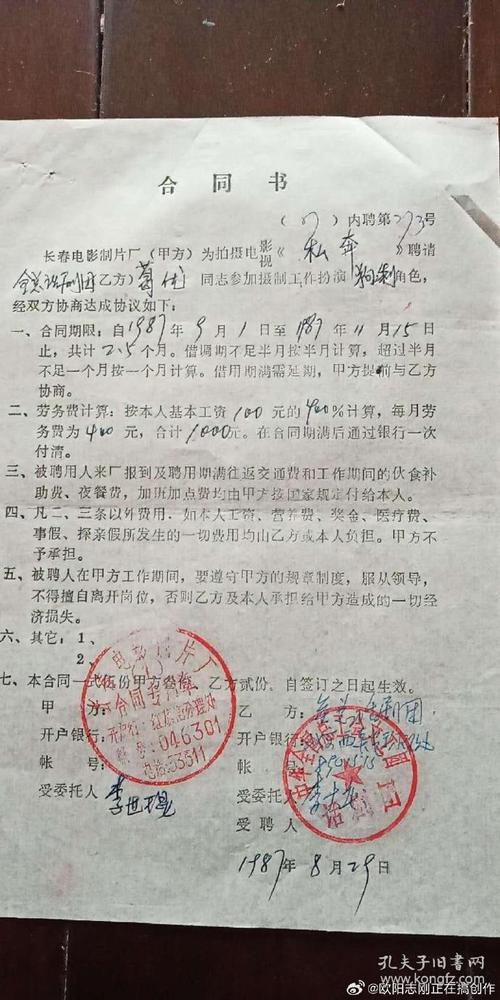 合同书
(87)内聘第273号
长春电影制片厂(甲方)为拍摄电影视《私奔》聘请
全总话剧团(乙方)葛优同志参加摄制工作扮演狗剩角色,
经双方协商达成协议如下:
一、合同期限:自1987年9月1日至1987年11月15日
止,共计2.5个月。借调期不足半月按半月计算,超过半月
不足一个月按一个月计算。借用期满需延期,甲方提前与乙方
协商。
二、劳务费计算:按本人基本工资100元的400%计算,每月劳
务费为400元,合计1000元。在合同期满后通过银行一次
付清。
三、被聘用人来厂报到及聘用期满往返交通费和工作期间的伙食补
助费、夜餐费,加班加点费均由甲方按国家规定付给本人。
四、凡二、三条以外费用,如本人工资、营养费、奖金、医疗费、
事假、探亲假所发生的一切费用均由乙方或本人负担。甲方不
予承担。
五、被聘人在甲方工作期间,要遵守甲方的规章制度,服从领导,
不得擅自离开岗位,否则乙方及本人承担给甲方造成的一切经
济损失。
六、其它:1、
2、
七、本合同一式伍份甲方叁份,乙方贰份。自签订之日起生效。
甲方:
乙方:全总话剧团
开户银行:
开户银行:
帐号:
帐号:
受委托人 李世琨
受委托人
受聘人
1987年8月29日
电影制片厂
合同专用章
046301
电话:53311
话剧团
孔夫子旧书网
@欧阳志刚正在搞创作